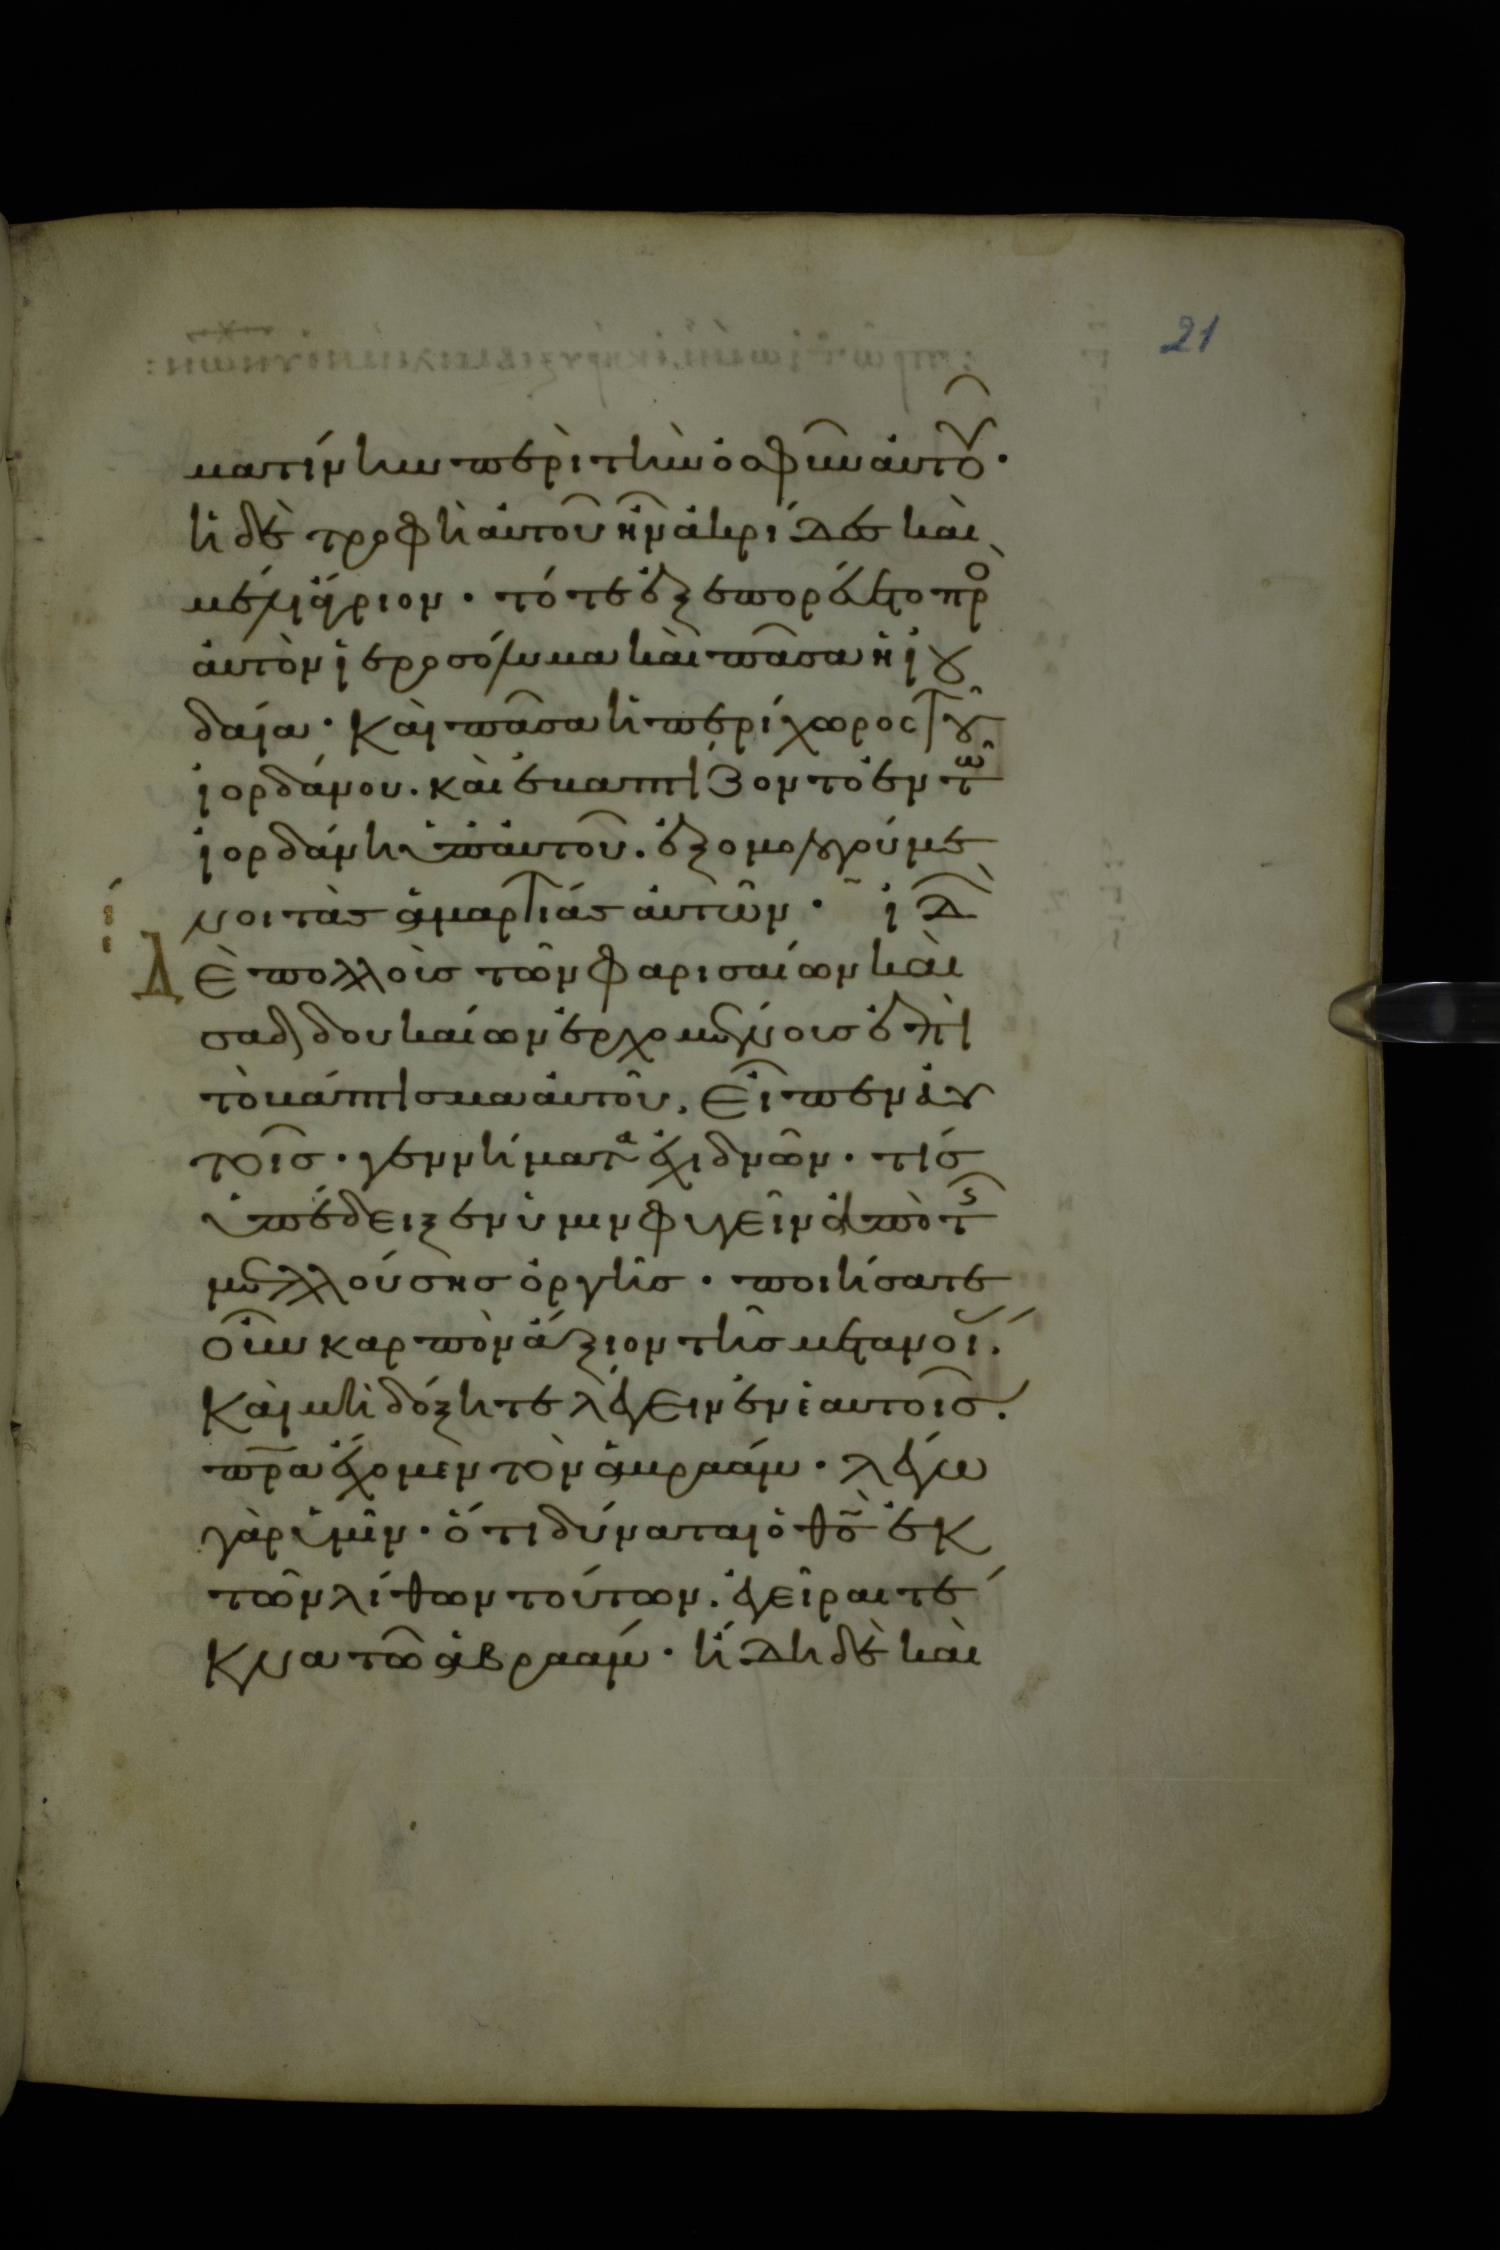 21
ματίνην περὶ τὴν ὀσφὺν αὐτοῦ·
ἡ δὲ τροφὴ αὐτοῦ ἦν ἀκρίδες καὶ
μέλι ἄγριον· τότε ἐξεπορεύετο πρὸ
αὐτὸν ἱεροσόλυμα καὶ πᾶσα ἡ ἰου
δαία· Καὶ πᾶσα ἡ περίχωρος τοῦ
ἰορδάνου. καὶ ἐβαπτίζοντο ἐν τῶ
ἰορδάνη ὑπ' αὐτοῦ. ἐξομολογούμε
νοι τὰς ἁμαρτίας αὐτῶν· ἰδ
Δὲ πολλοὺς τῶν φαρισαίων καὶ
σαδδουκαίων ἐρχομένους ἐπὶ
τὸ βάπτισμα αὐτοῦ. Εἶπεν αὐ
τοῖς· γεννήματα ἐχιδνῶν· τίς
ὑπέδειξεν ὑμιν φυγεῖν ἀπὸ τῆς
μελλούσης ὀργῆς· ποιήσατε
οὖν καρπὸν ἄξιον τῆς μετανοί.
Καὶ μὴ δόξητε λέγειν ἐν ἑαυτοῖς.
πρα ἔχομεν τὸν ἀβραάμ· λέγω
γὰρ ὑμῖν· ὅτι δύναται ὁ θσ ἐκ
τῶν λίθων τούτων. ἐγεῖραι τέ
κνα τῶ ἀβραάμ· ἤδη δὲ καὶ